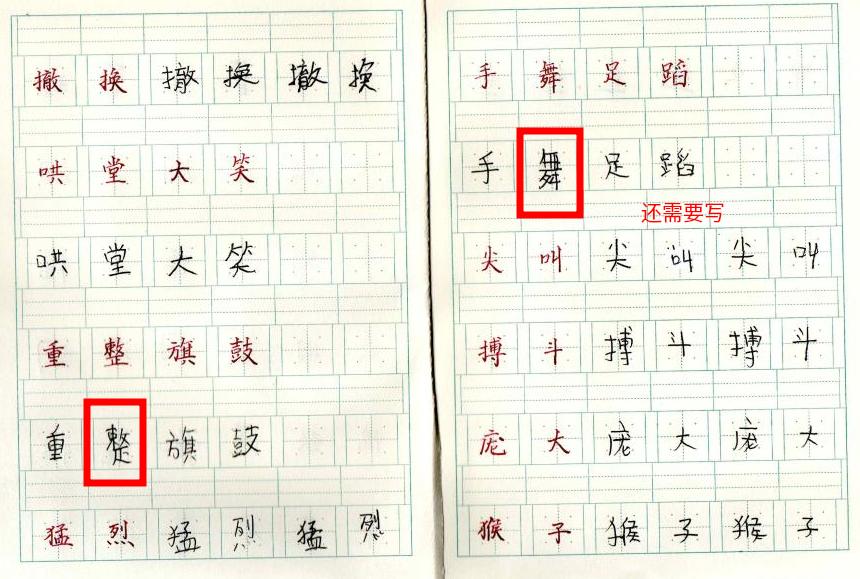 撤换撤换撤换
哄堂大笑
哄堂大笑
重整旗鼓
重整旗鼓
猛烈猛烈猛烈
手舞足蹈
手舞足蹈
还需要写
尖叫尖叫尖叫
搏斗搏斗搏斗
庞大庞大庞大
猴子猴子猴子